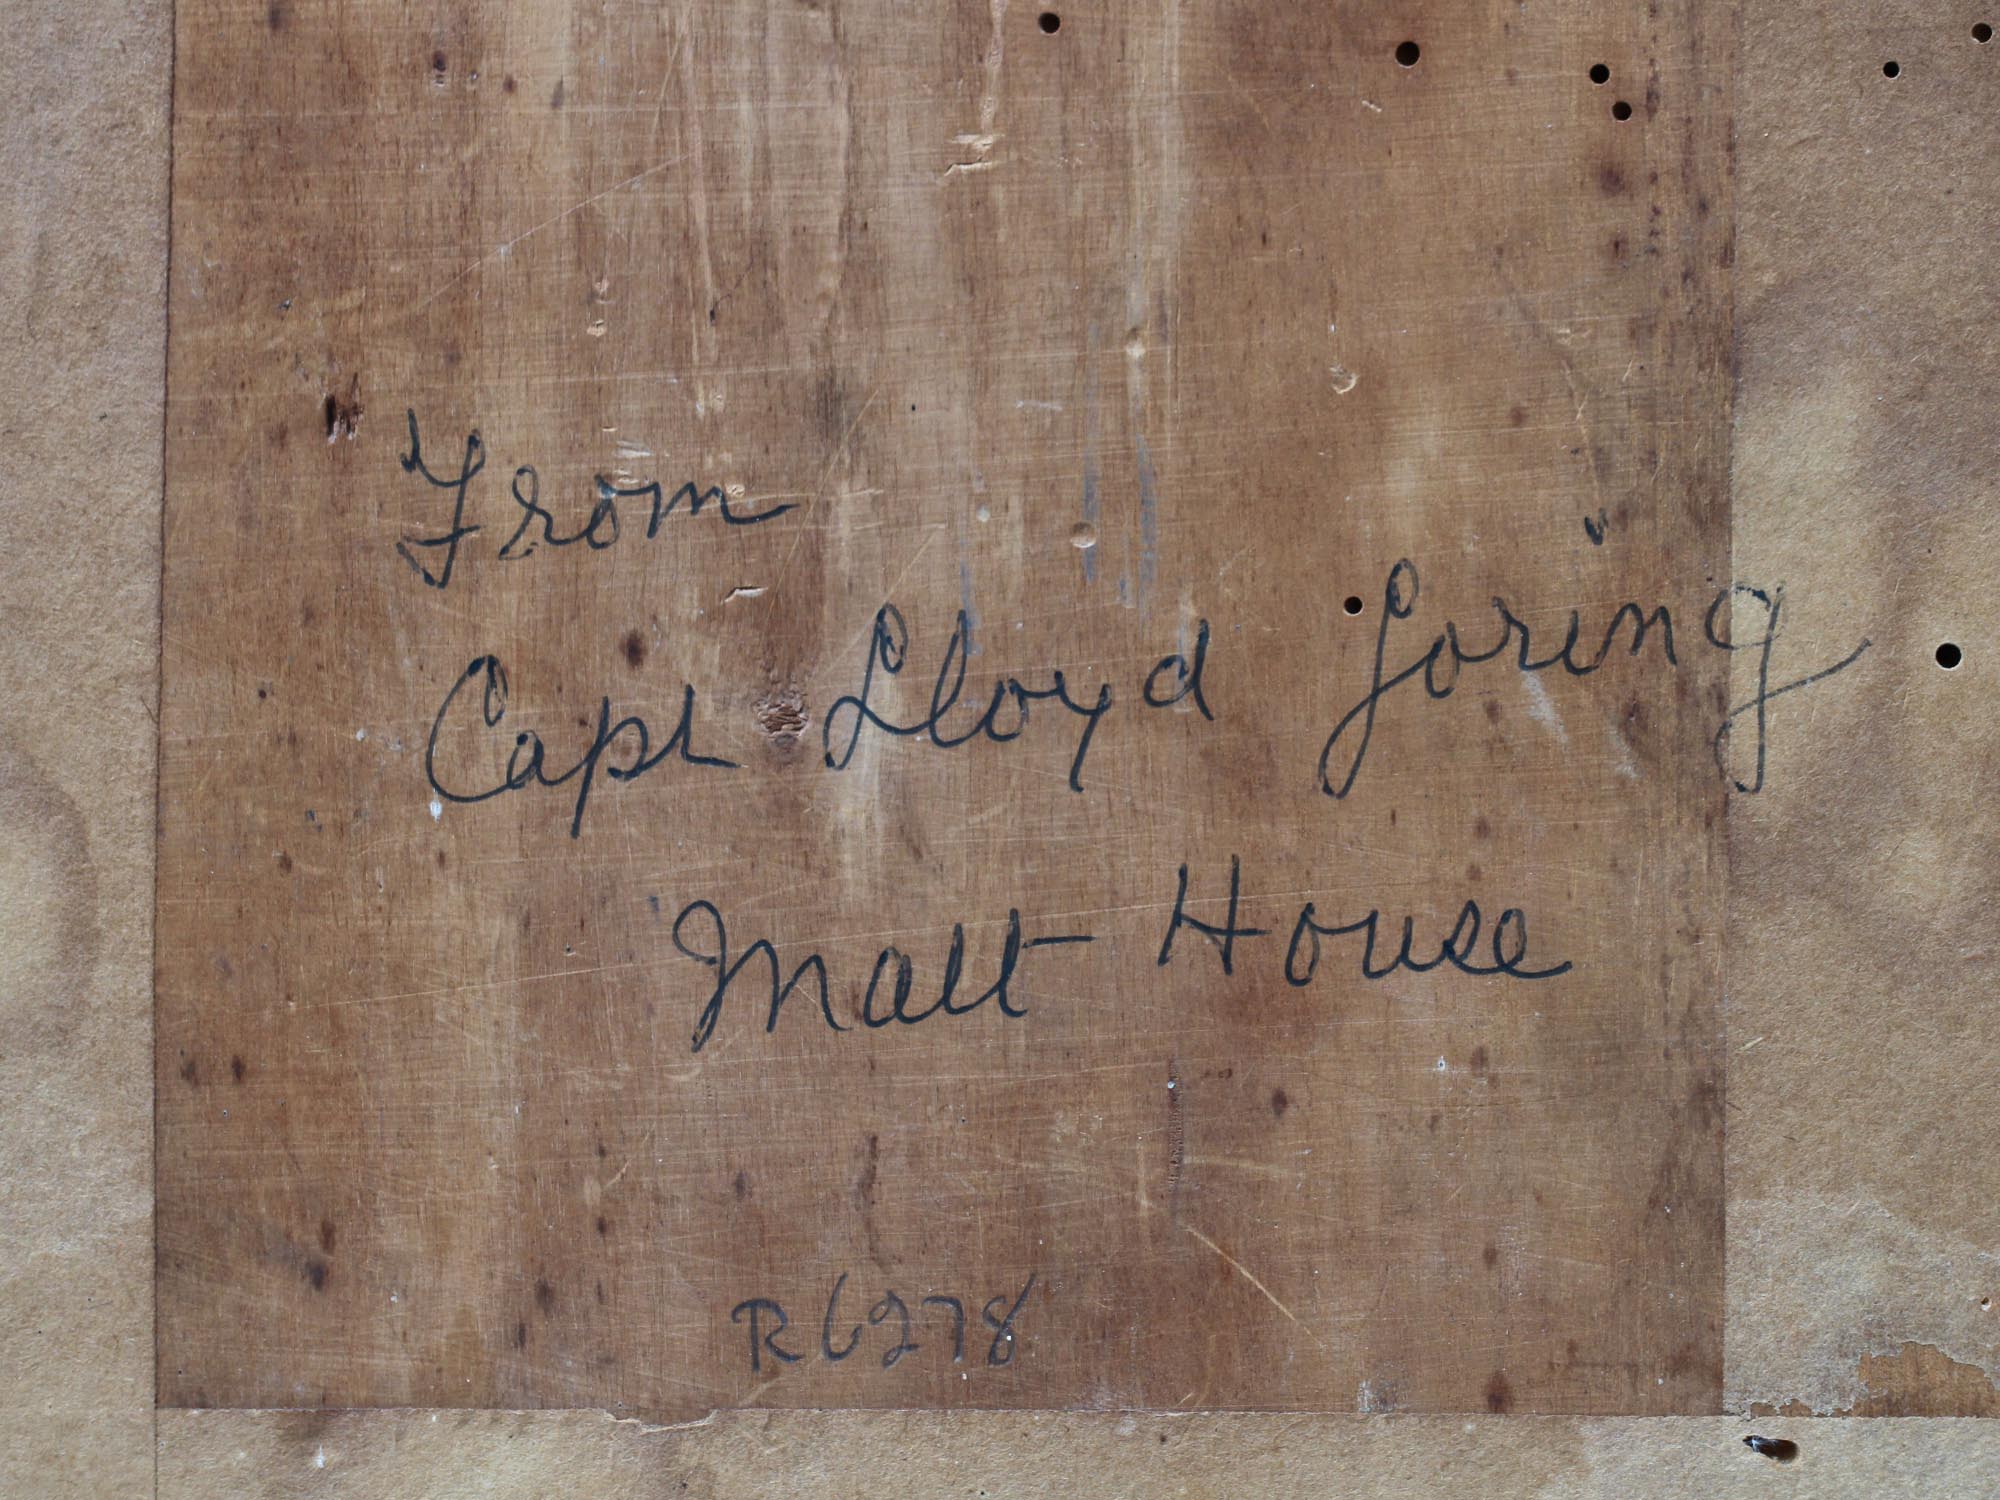 From
Capt Lloyd Loring
Matt House
R6278